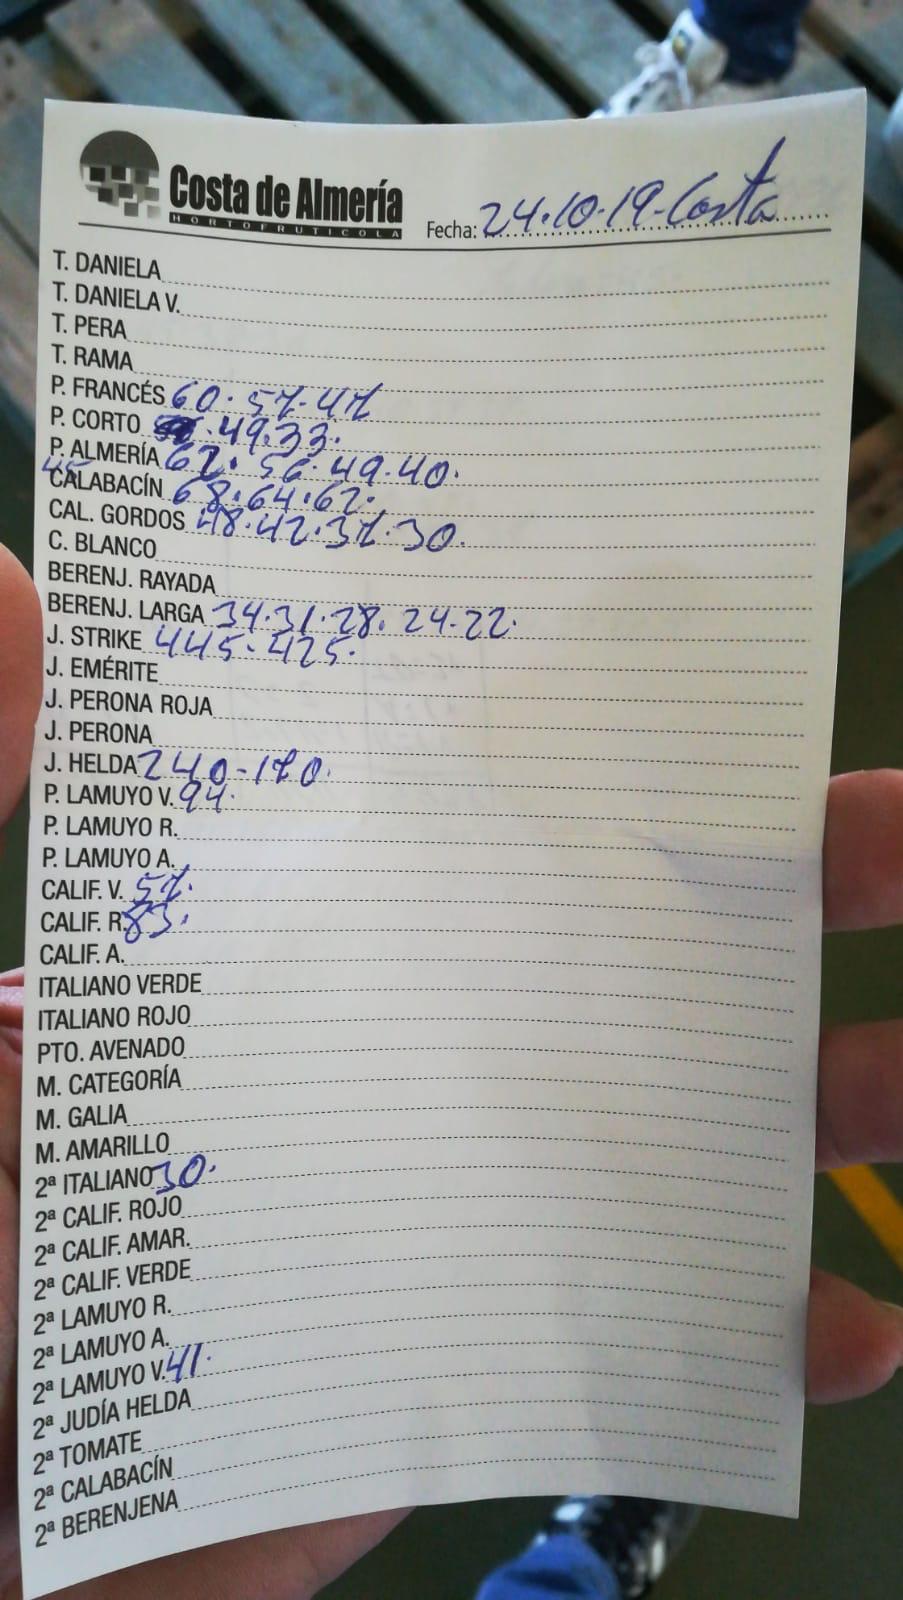 Costa de Almería
HORTOFRUTICOLA
Fecha: 24.10.19-Costa
T. DANIELA
T. DANIELA V.
T. PERA
T. RAMA
P. FRANCÉS 60. 57-47
P. CORTO .49.33.
P. ALMERÍA 62. 56.49.40.
45
CALABACÍN 68.64.62.
CAL. GORDOS 48.42.37.30.
C. BLANCO
BERENJ. RAYADA
BERENJ. LARGA 34.31.28. 24-22.
J. STRIKE 445-425.
J. EMÉRITE
J. PERONA ROJA
J. PERONA
J. HELDA 240-170.
P. LAMUYO V. 94.
P. LAMUYO R.
P. LAMUYO A.
CALIF. V. 57.
CALIF. R. 83.
CALIF. A.
ITALIANO VERDE
ITALIANO ROJO
PTO. AVENADO
M. CATEGORÍA
M. GALIA
M. AMARILLO
2ª ITALIANO 30.
2ª CALIF. ROJO
2ª CALIF. AMAR.
2ª CALIF. VERDE
2ª LAMUYO R.
2ª LAMUYO A.
2ª LAMUYO V. 41.
2ª JUDÍA HELDA
2ª TOMATE
2ª CALABACÍN
2ª BERENJENA